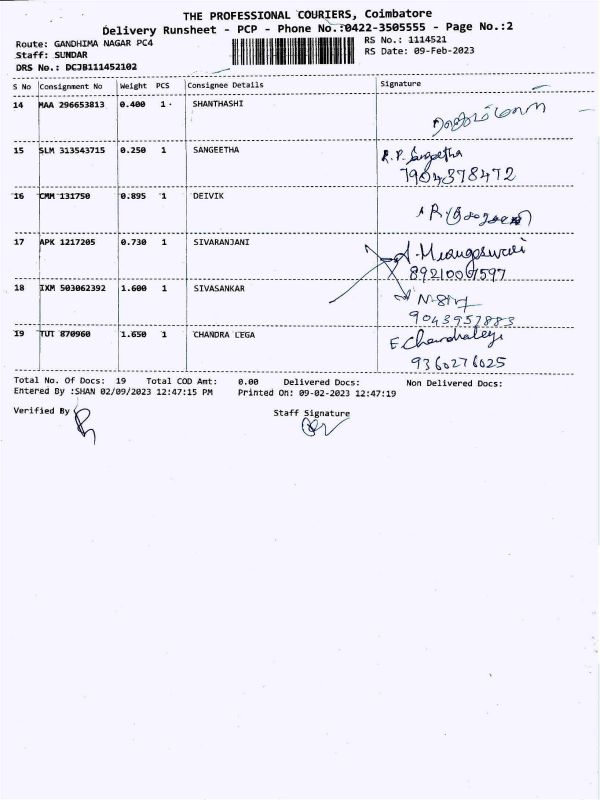 THE PROFESSIONAL COURIERS, Coimbatore
Delivery Runsheet - PCP - Phone No.:0422-3505555 - Page No.:2
Route: GANDHIMA NAGAR PC4
RS No.: 1114521
Staff: SUNDAR
RS Date: 09-Feb-2023
DRS No.: DCJB111452102
S No Consignment No Weight PCS Consignee Details Signature
14 MAA 296653813 0.400 1 SHANTHASHI
15 SLM 313543715 0.250 1 SANGEETHA R.P. Sangeetha
7904378472
16 CMM 131750 0.895 1 DEIVIK
17 APK 1217205 0.730 1 SIVARANJANI
8921006597
18 IXM 503062392 1.600 1 SIVASANKAR
9043957883
19 TUT 870960 1.650 1 CHANDRA LEGA E.Chandralega
9360276025
Total No. Of Docs: 19 Total COD Amt: 0.00 Delivered Docs: Non Delivered Docs:
Entered By :SHAN 02/09/2023 12:47:15 PM Printed On: 09-02-2023 12:47:19
Verified By
Staff Signature